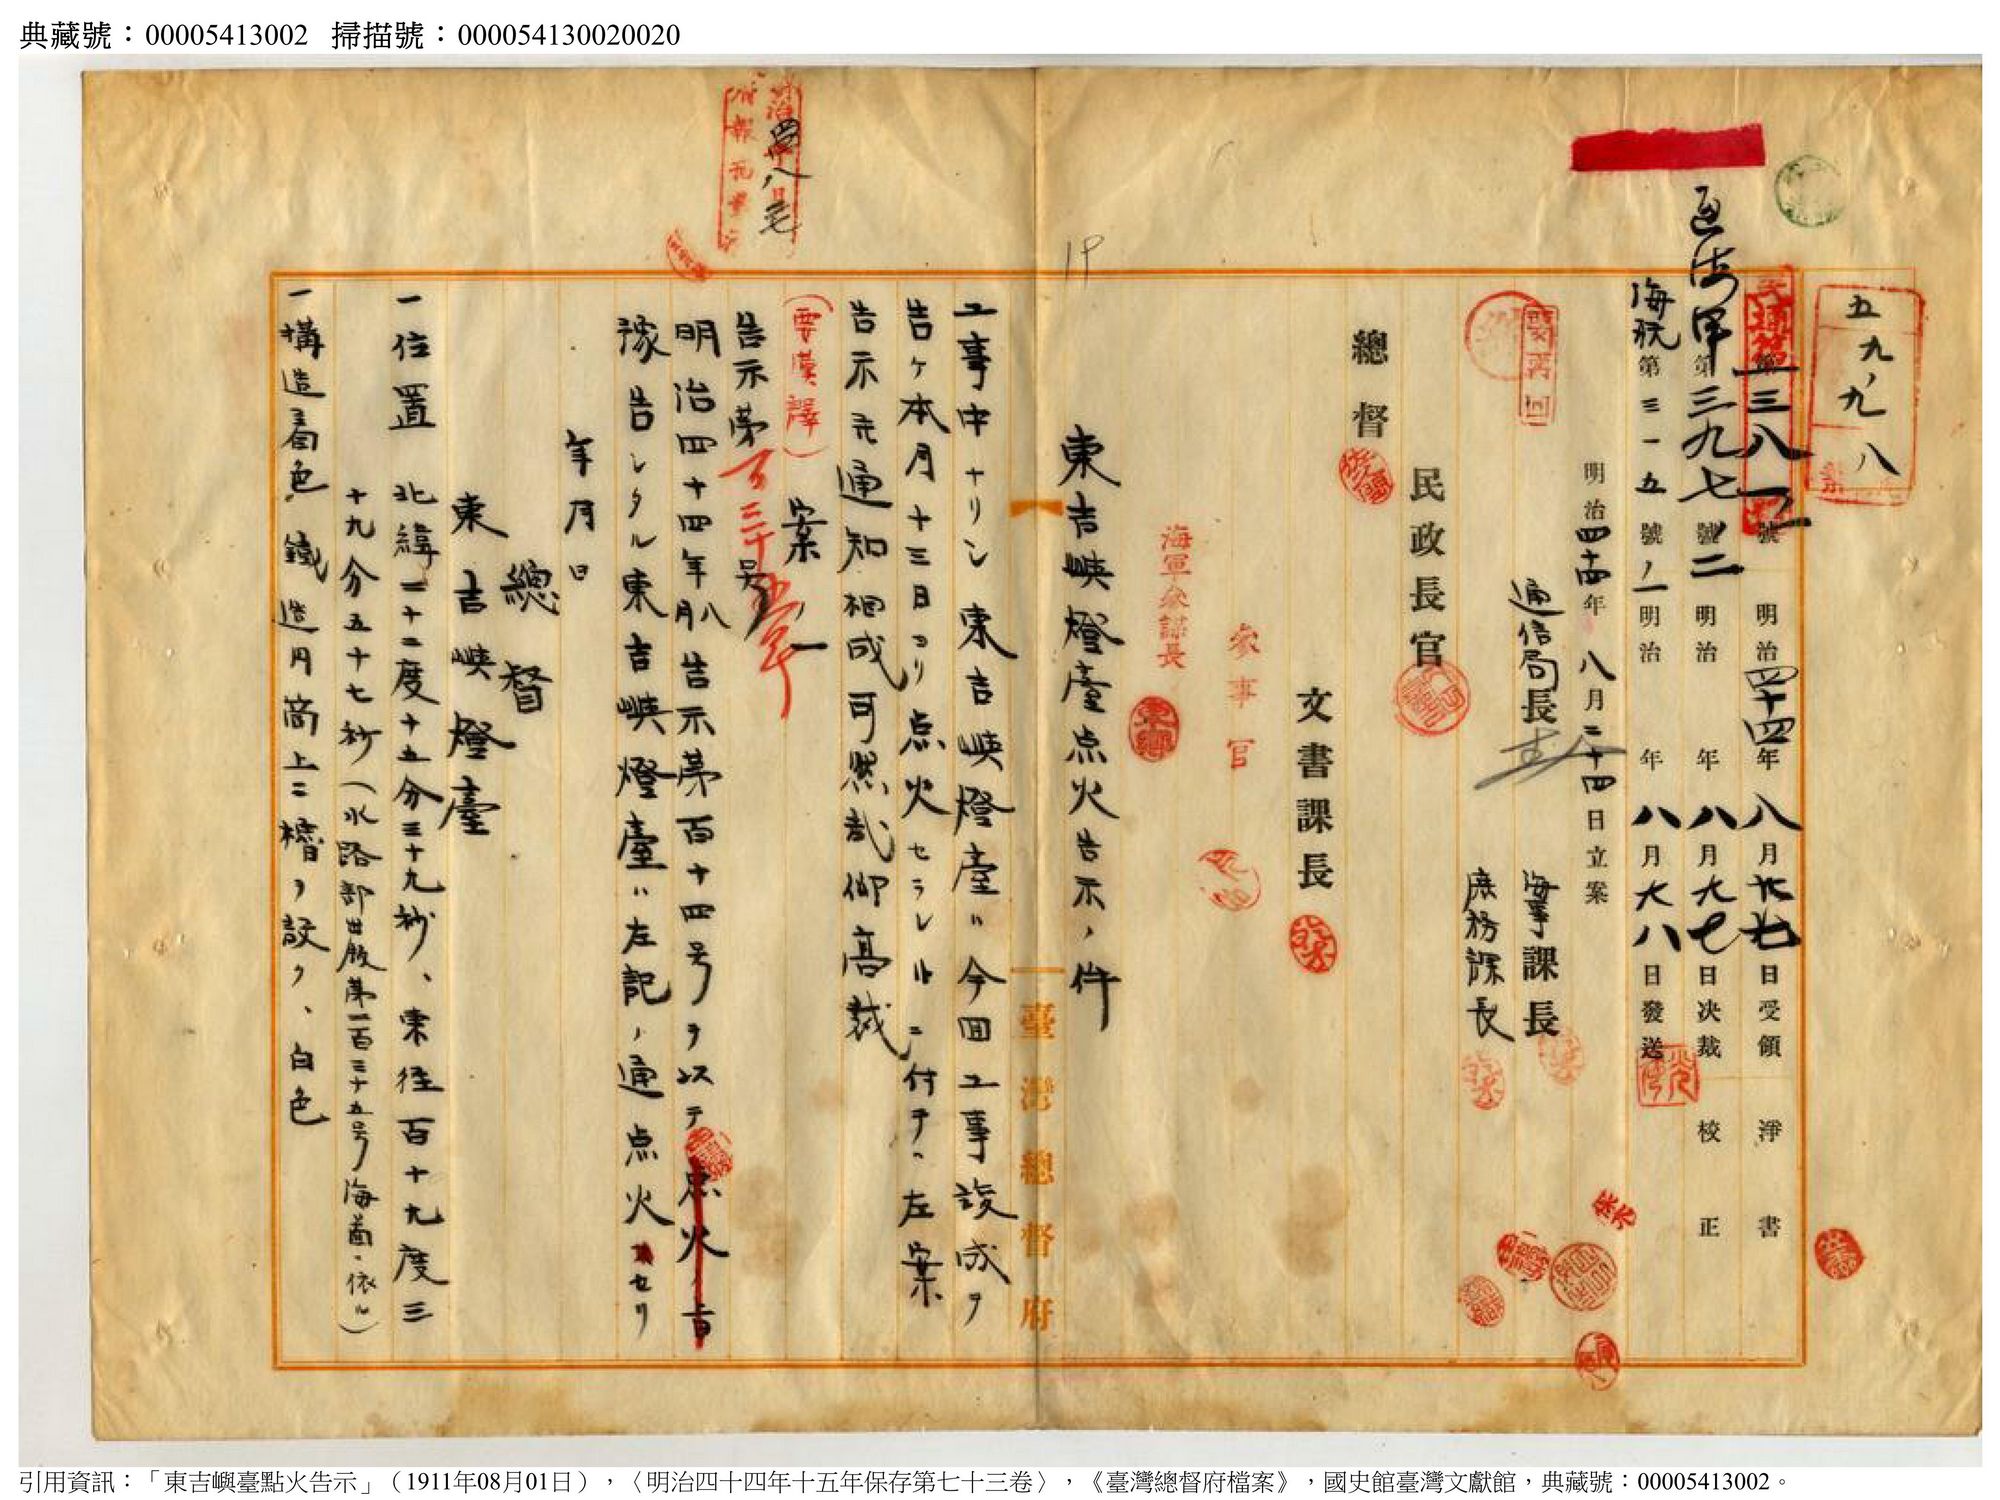 典藏號：00005413002 掃描號：000054130020020
五九、九八
第一三八一號 明治四十四年八月廿七日受領 淨書
第三九七號ノ二 明治 年八月九七日決裁 校正
海航第三一五號ノ一 明治 年八月九八日發送
明治四十四年八月二十四日立案
通信局長 海事課長
庶務課長
民政長官
總督
文書課長
參事官
海軍參謀長
東吉嶼燈臺点火告示ノ件
工事中ナリシ東吉嶼燈臺ハ今回工事竣成ヲ
告ケ本月十三日ヨリ点火セラレルニ付テハ左案
告示元通知相成可然哉仰高裁
(要漢譯) 案ノ一
告示第百三十五号
明治四十四年八月告示第百十四号ヲ以テ点火ノ旨
豫告シタル東吉嶼燈臺ハ左記ノ通点火セリ
年月日
總督
東吉嶼燈臺
一位置 北緯二十二度十五分三十九秒、東徑百十九度三
十九分五十七秒(水路部出版第一百三十五号海圖ニ依ル)
一構造着色 鐵造円筒上ニ櫓ヲ設ク、白色
臺灣總督府
引用資訊：「東吉嶼臺點火告示」（1911年08月01日），〈明治四十四年十五年保存第七十三卷〉，《臺灣總督府檔案》，國史館臺灣文獻館，典藏號：00005413002。